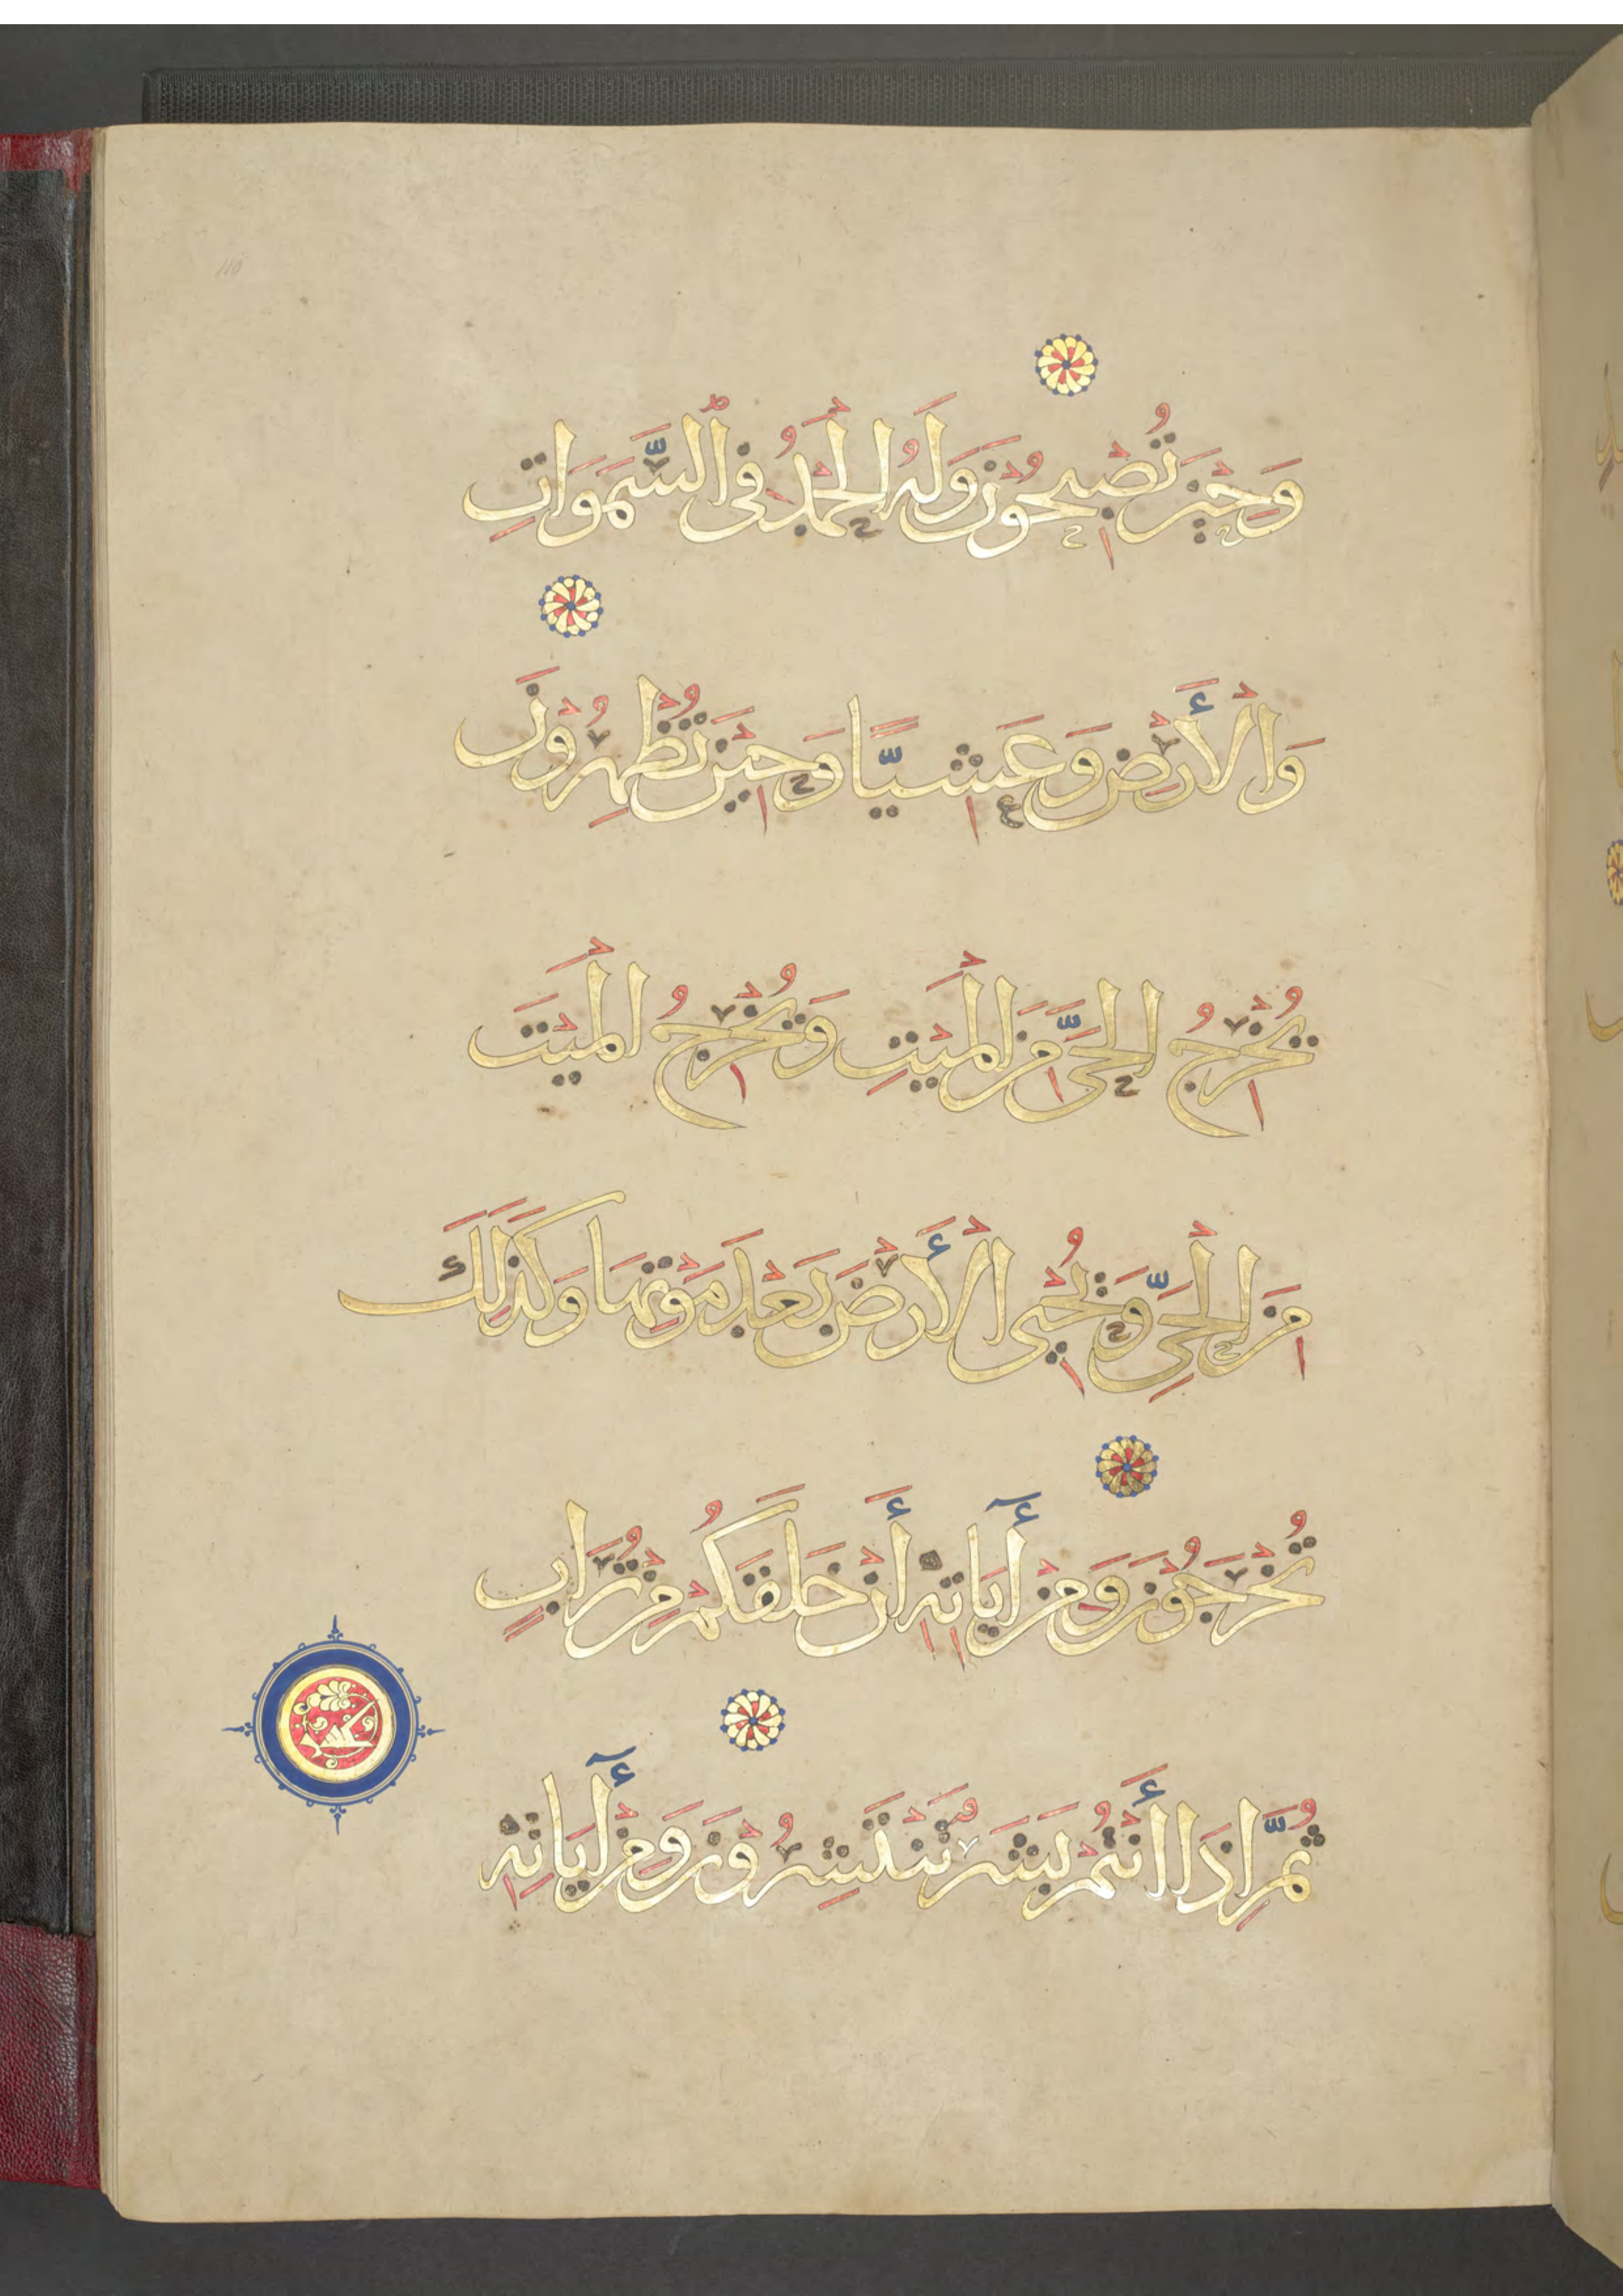 110
وَحِينَ تُصْبِحُونَ وَلَهُ الْحَمْدُ فِي السَّمَوَاتِ
وَالْأَرْضِ وَعَشِيًّا وَحِينَ تُظْهِرُونَ
يُخْرِجُ الْحَيَّ مِنَ الْمَيْتِ وَيُخْرِجُ الْمَيْتَ
مِنَ الْحَيِّ وَيُحْيِي الْأَرْضَ بَعْدَ مَوْتِهَا وَكَذَلِكَ
تُخْرَجُونَ وَمِنْ أٓيَاتِهِ أَنْ خَلَقَكُمْ مِنْ تُرَابٍ
ثُمَّ إِذَا أَنْتُمْ بَشَرٌ تَنْتَشِرُونَ وَمِنْ أٓيَاتِهِ